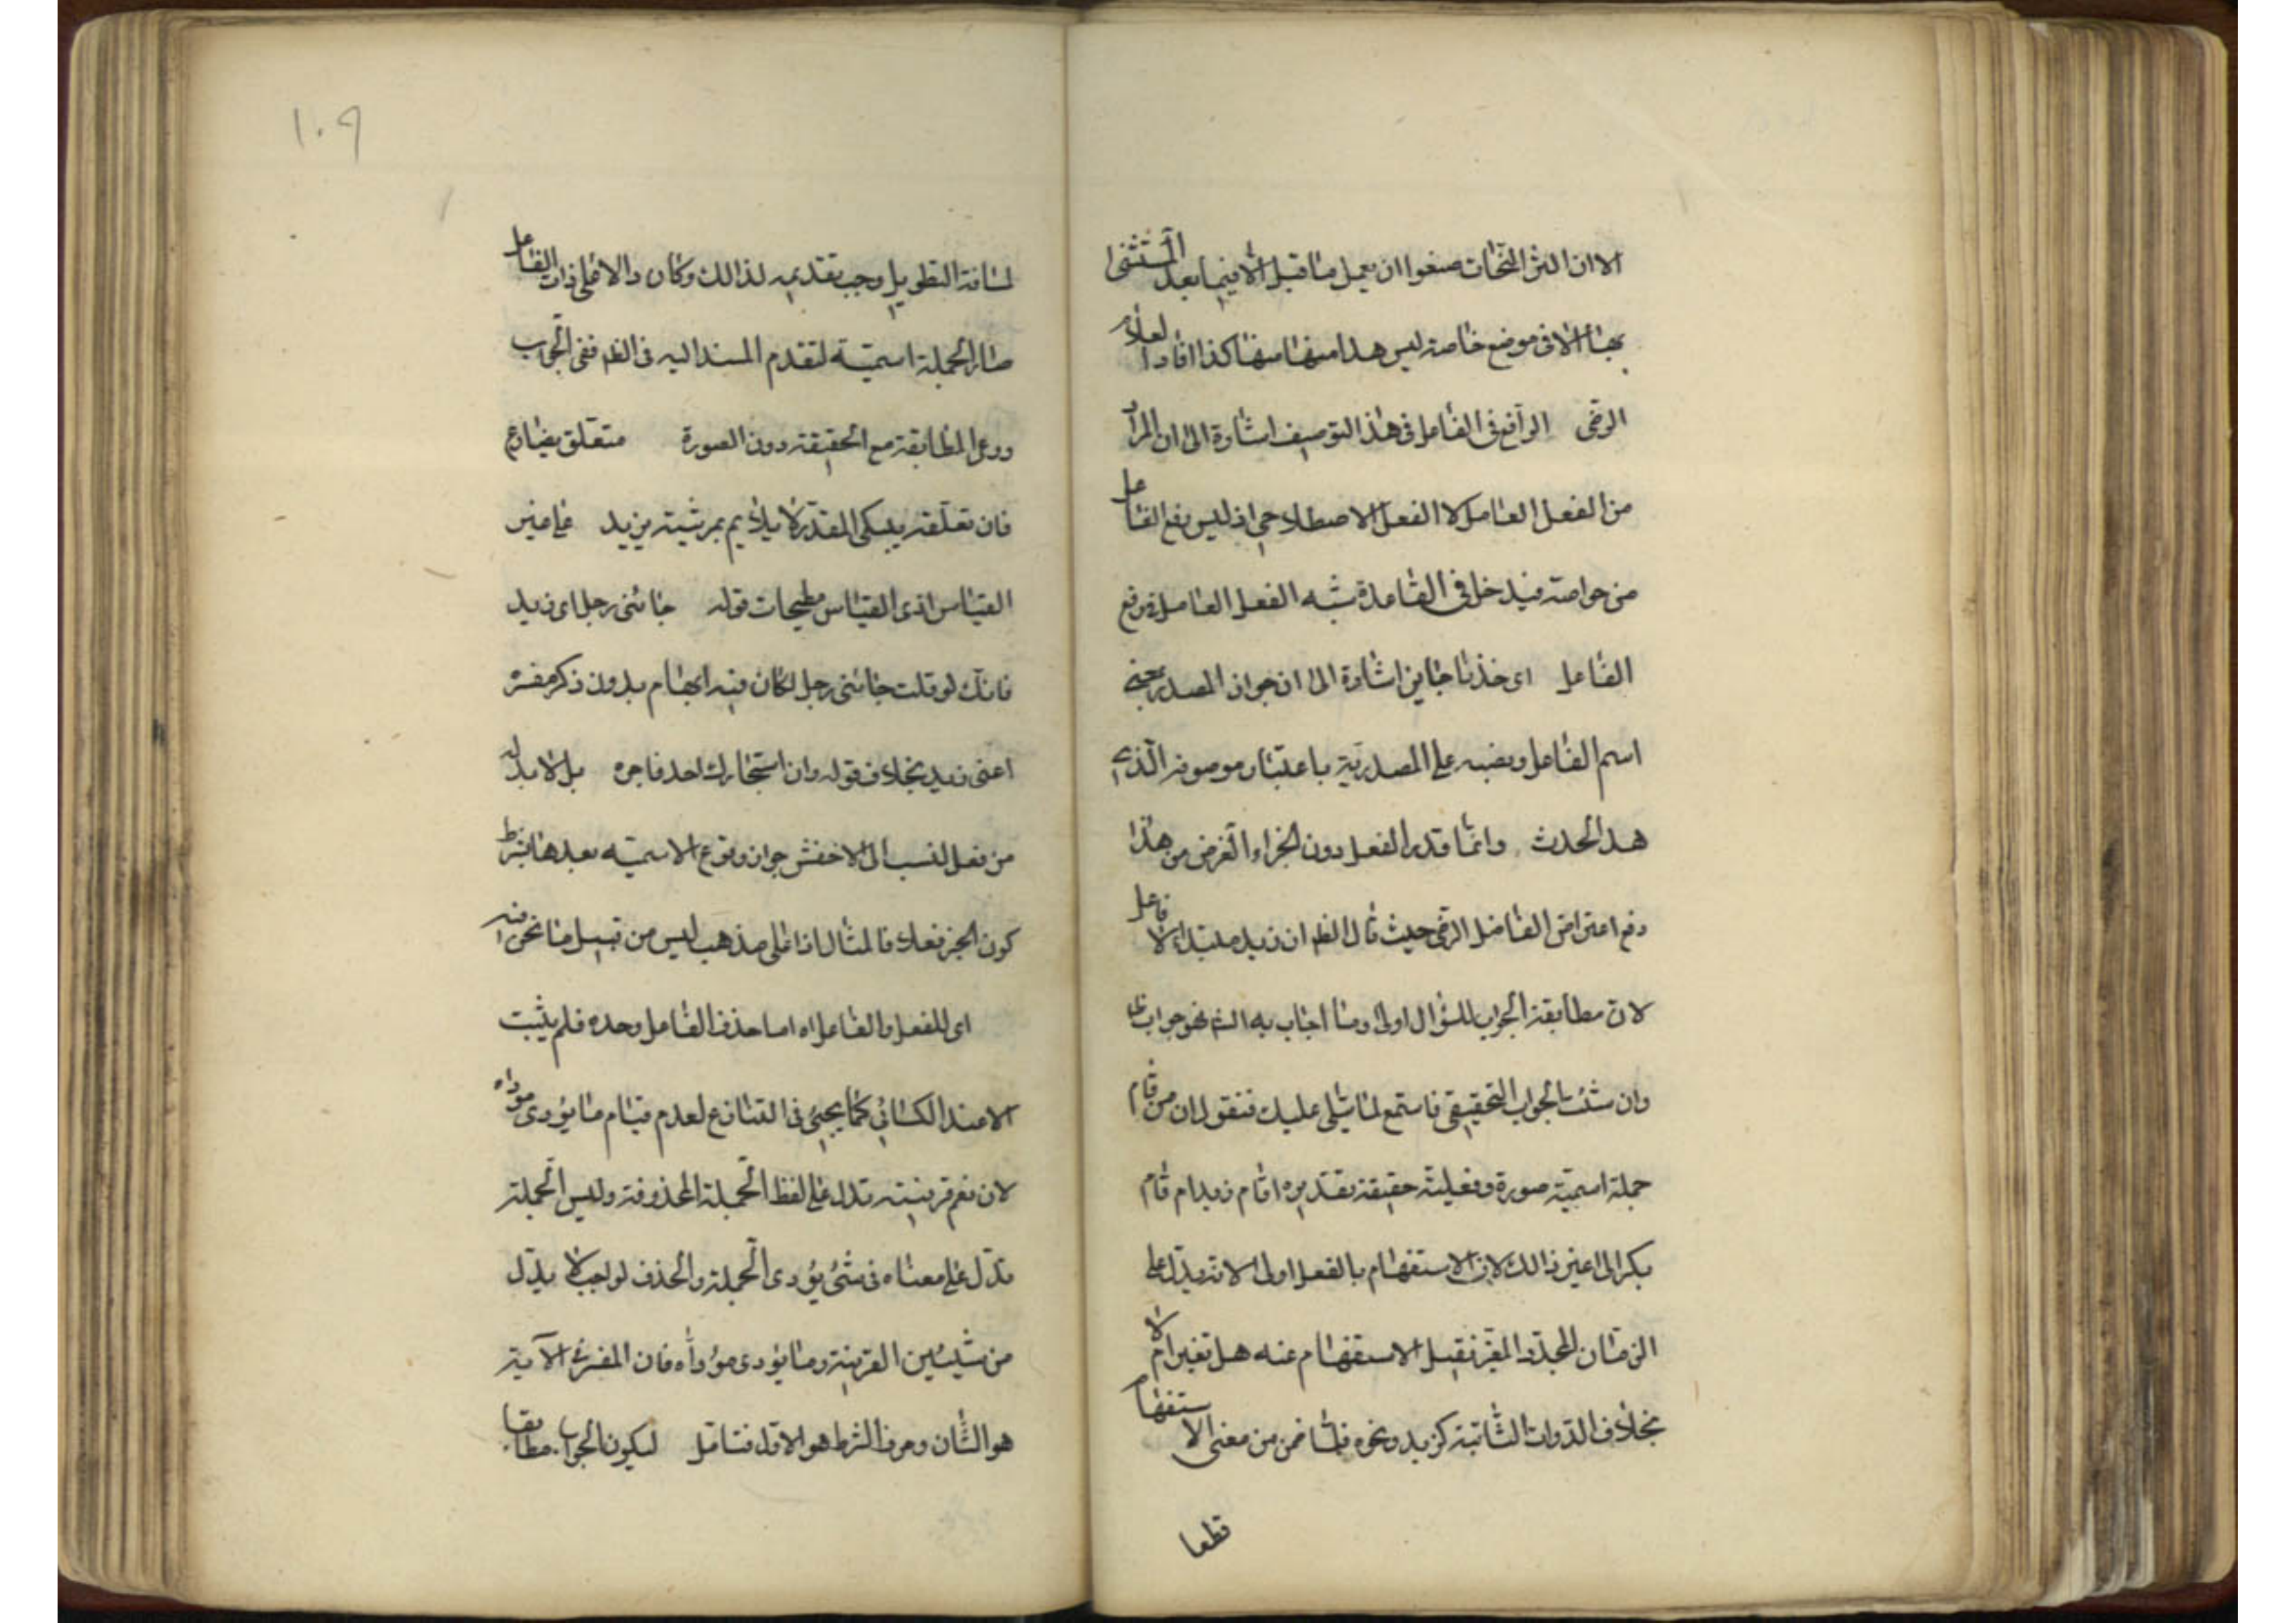 الا ان اكثر النحات منعوا ان يعمل ما قبل الا فيما بعد المستثنى
بها الا فى موضع خاصة ليس هذا منها كذا افاد العلام
الرضى الرافع فى الفاعل فى هذا التوصيف اشارة الى ان المراد
من الفعل العامل لا الفعل الاصطلاحى اذ ليس رفع الفاعل
من خواصه فيدخل فى القاعدة شبه الفعل العامل فى رفع
الفاعل اى حذفا جايزا اشارة الى ان جواز المصدر بمعنى
اسم الفاعل ونصبه على المصدرية باعتبار موصوفه الذى
هذا الحدث وانما قدر الفعل دون الخبر اه الغرض من هذا
دفع اعتراض الفاضل الرضى حيث قال الظ ان زيد مبتداء لا فاعل
لان مطابقة الجواب للسؤال اولى وما اجاب به الش نحو جواب
وان شئت بالجواب التحقيقى فاستمع لما يتلى عليك فنقول ان من قام
جملة اسمية صورة وفعلية حقيقة تقديره اقام زيد ام قام
بكر الى غير ذالك لان الاستفهام بالفعل اولى لانه يدل على
الزمان المجدد المتغير فيقبل الاستفهام عنه هل تغير ام لا
بخلاف الذوات الثابتة كزيد ونحوه فلما ضمن من معنى الاستفهام
قطعا
١٠٩
لمسافة التطويل وجب تقديمه لذالك وكان دالا على ذات الفاعل
صار الجملة اسمية لتقدم المسند اليه فى الظ ففى الجواب
روعى المطابقة مع الحقيقة دون الصورة متعلق بضارع
فان تعلقه بيبكى المقدر لا يلايم بمرثية يزيد على غير
القياس اذ القياس مطيحات قوله جائنى رجل اى زيد
فانك لو قلت جائنى رجل لكان فيه ابهام بدون ذكر مفسره
اعنى زيد بخلاف قوله وان استجارك احد فاجره بل لا بد له
من فعل نسب الى الاخفش جواز وقوع الاسمية بعدها بشرط
كون الخبر فعلا فالمثال اذا على مذهب ليس من قبيل ما نحن فيه
اى للفعل والفاعل اه اما حذف الفاعل وحده فلم يثبت
الا عند الكسائى كما يجيئ فى التنازع لعدم قيام ما يؤدى موداه
لان نعم قرينة تدل على لفظ الجملة المحذوفة وليس الجملة
تدل على معناه فى شئ يؤدى الجملة والحذف لواجب لا بدل
من شيئين القرينة وما يؤدى مؤداه فان المفسر فى الآية
هو الثان وحرف الشرط هو الاول فتامل ليكون الجواب مطابقا